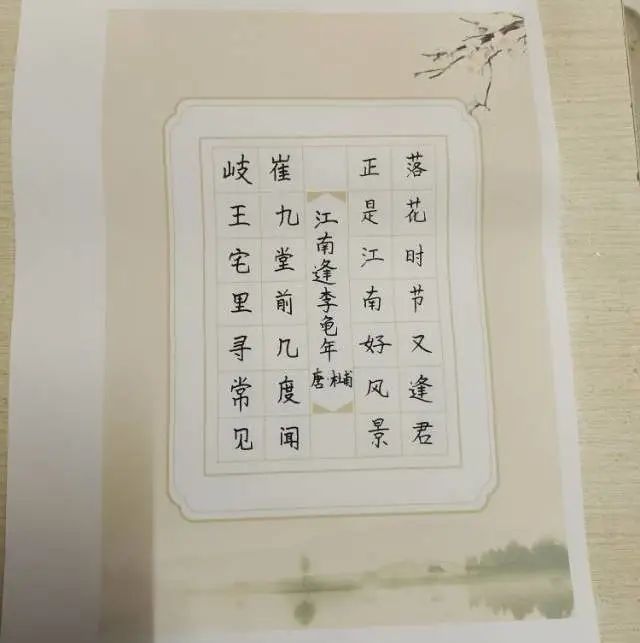 岐王宅里寻常见
崔九堂前几度闻
江南逢李龟年
唐 杜甫
正是江南好风景
落花时节又逢君